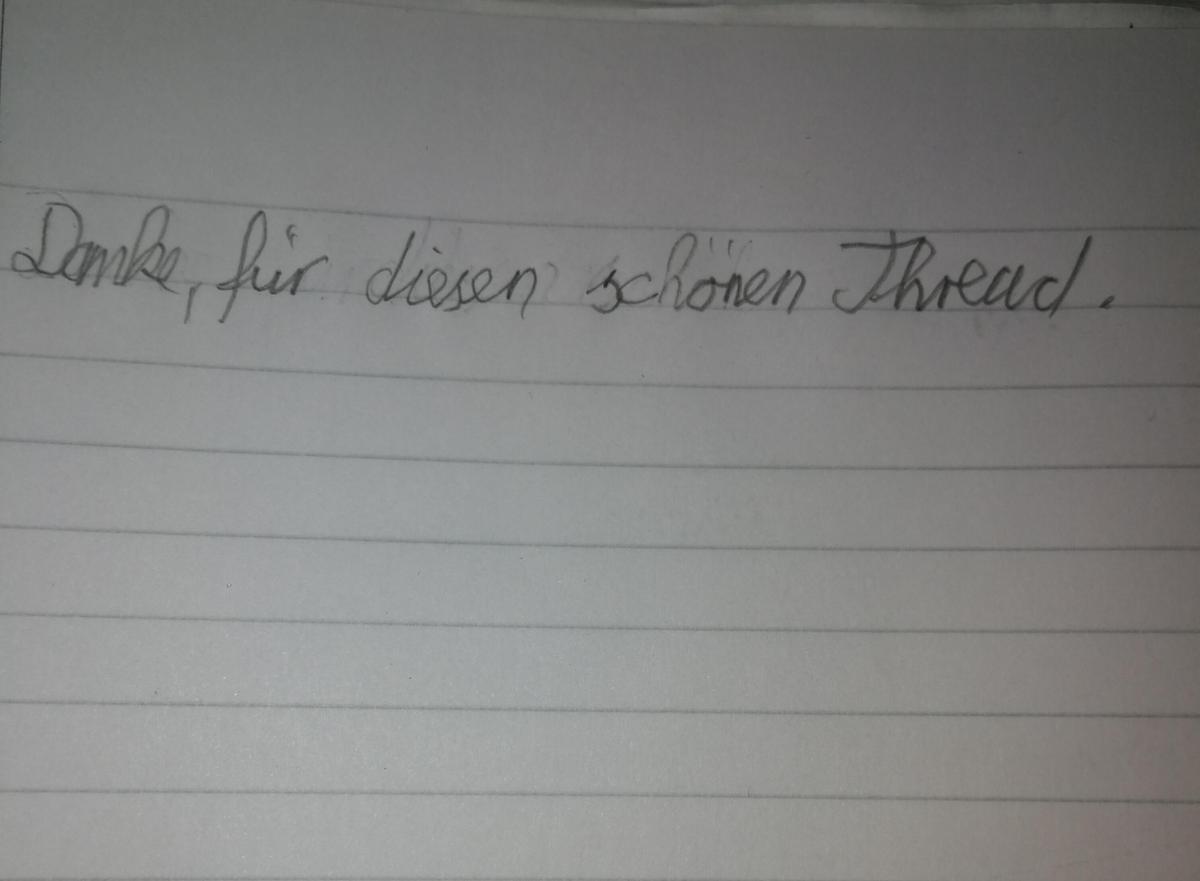 Danke, für diesen schönen Thread.